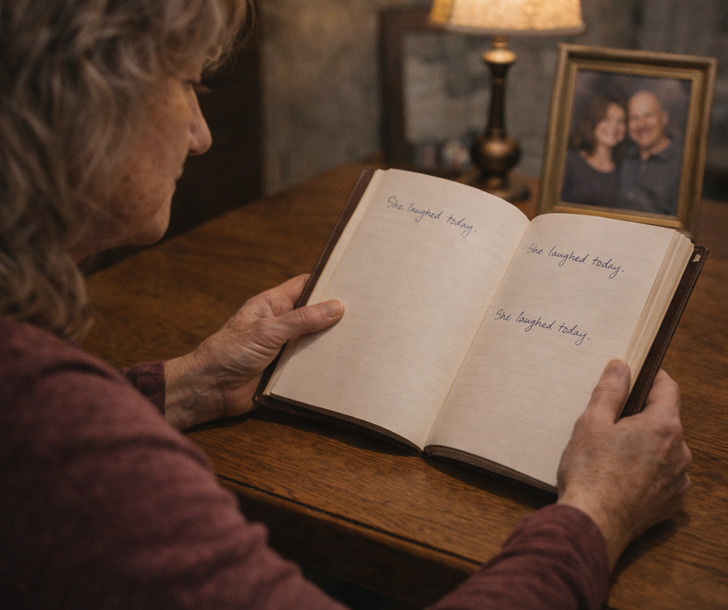 She laughed today.
She laughed today.
She laughed today.